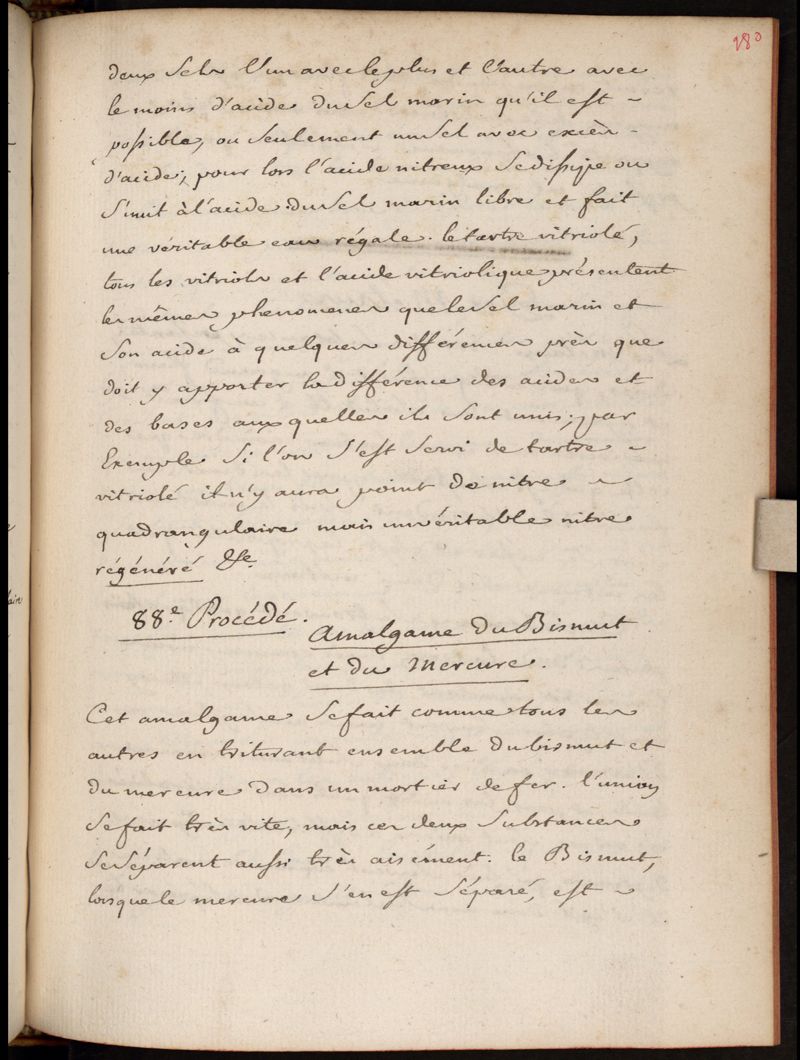 180
deux sels l'un avec le plus et l'autre avec
le moins d'acide du sel marin qu'il est
possible, ou seulement un sel avec excès
d'acide; pour lors l'acide nitreux se dissipe ou
s'unit à l'acide du sel marin libre et fait
une véritable eau régale. le tartre vitriolé,
tous les vitriols et l'acide vitriolique présentent
les mêmes phenomenes que le sel marin et
son acide à quelques différences près que
doit y apporter la différence des acides et
des bases aux quelles ils sont unis; par
Exemple si l'on s'est servi de tartre
vitriolé il n'y aura point de nitre
quadrangulaire mais un véritable nitre
régénéré &c.
88.e Procédé.
Amalgame du Bismut
et du Mercure.
Cet amalgame se fait comme tous les
autres en triturant ensemble du bismut et
du mercure dans un mortier de fer. l'union
se fait très vite, mais ces deux substances
se séparent aussi très aisément. le Bismut,
lorsque le mercure s'en est séparé, est